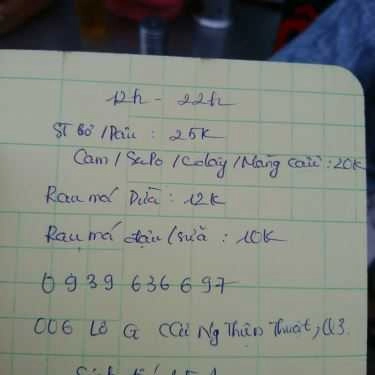 12h - 22h
ST Bơ / Dâu : 25K
Cam / Sapo / Cóc ép / Mãng cầu : 20K
Rau má Dừa : 12K
Rau má đậu / sữa : 10K
0939 636 697
006 Lô G CC Ng Thiện Thuật, Q3.